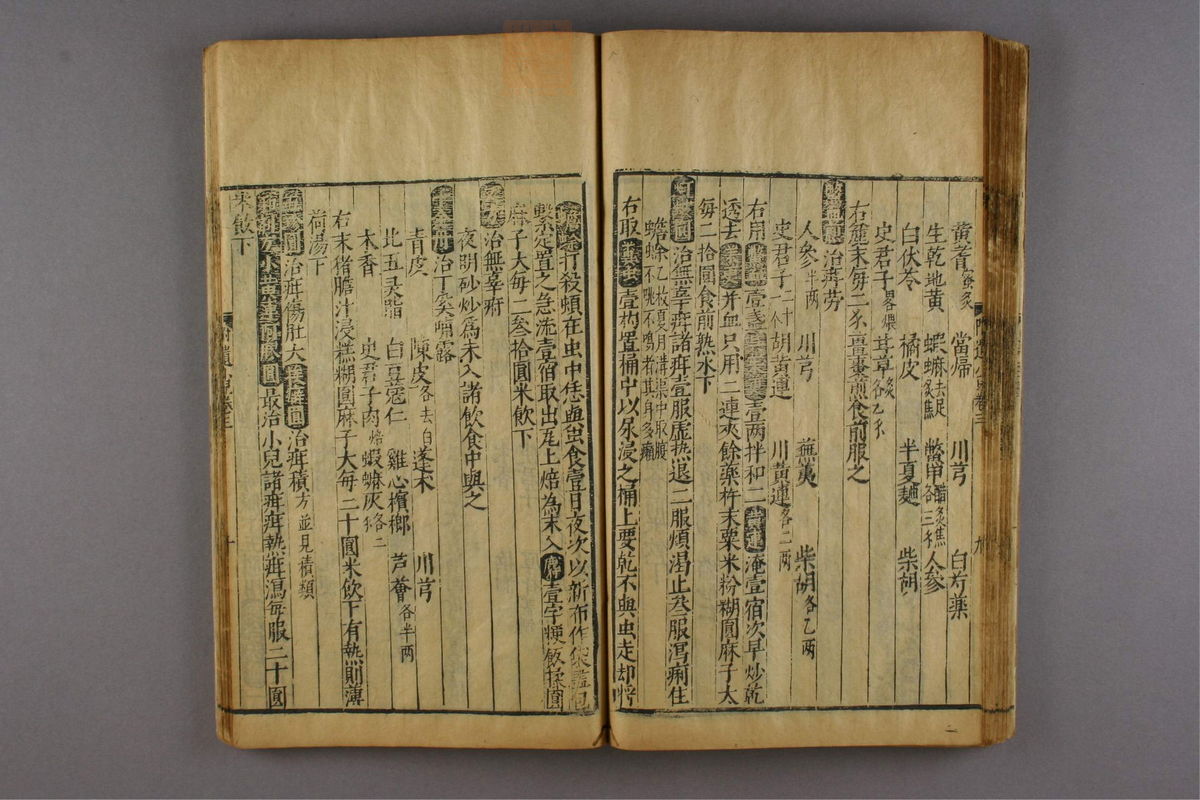 黄耆蜜炙 當歸 川芎 白芍藥
生乾地黄 蝦蟆去足炙焦 鱉甲醋炙焦各三分 人參
白伏苓 橘皮 半夏麵 柴胡
史君子畧煨 甘草炙各乙分
右麄末每二分薑棗煎食前服之
治疳劳
人參半两 川芎 蕪荑 柴胡各乙两
史君子二十一个 胡黄連 川黄連各二两
右用壹盞壹两拌和二黄連淹壹宿次早炒乾
透去并血只用二連夾餘藥杵末粟米粉糊圓麻子大
每二拾圓食前熟水下
治無辜疳諸疳壹服虚热退二服煩渴止叁服瀉痢住
蟾蜍乙枚夏月溝渠中取腹大不跳不鳴者其身多癩
右取糞虫壹杓置桶中以尿浸之桶上要乾不與虫走却将
蟾蜍打殺頓在虫中恁與虫食壹日夜次以新布作袋盡包
繫定置之急流壹宿取出瓦上焙為末入麝壹字粳飯揉圓
麻子大每二叁拾圓米飲下
治無辜疳
夜明砂炒為末入諸飲食中與之
治丁奚哺露
青皮 陳皮各去白 蓬术 川芎
北五灵脂 白豆蔻仁 雞心檳榔 芦薈各半两
木香 史君子肉焙 蝦蟆灰各二分
右末猪膽汁浸糕糊圓麻子大每二十圓米飲下有熱則薄
荷湯下
治疳傷肚大 治疳積方並見積類
最治小兒諸疳疳熱疳瀉每服二十圓
米飲下